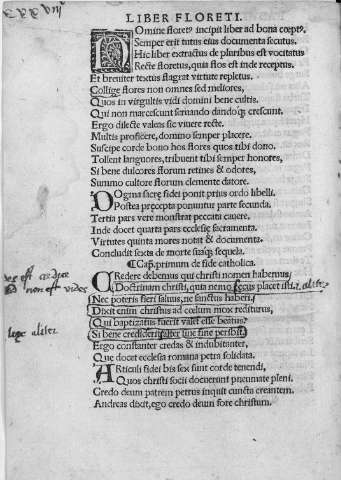 LIBER FLORETI.
NOmine floretꝰ incipit liber ad bona cœptꝰ.
Semper erit tutus eius documenta secutus.
Hic liber extractus de pluribus est vocitatus
Recte floretus, quia flos est inde receptus.
Et breuiter textus flagrat virtute repletus.
Collige flores non omnes sed meliores,
Quos in virgultis vidi domini bene cultis.
Qui non marcescunt seruando dandoq; crescunt.
Ergo dilecte valeas sic viuere recte.
Multis proficere, domino semper placere.
Suscipe corde bono hos flores quos tibi dono.
Tollent languores, tribuent tibi semper honores,
Si bene dulcores florum retines & odores,
Summo cultore florum clemente datore.
DOgma sacre fidei ponit prius ordo libelli.
Postea precepta ponuntur parte secunda.
Tertia pars vere monstrat peccata cauere.
Inde docet quarta pars ecclesie sacramenta.
Virtutes quinta mores notat & documenta.
Concludit sexta de morte suaq; sequela.
¶Cap. primum de fide catholica.
CRedere debemus qui christi nomen habemus,
Doctrinam christi, quia nemo secus placet isti.
Nec poteris fieri saluus, ne sanctus haberi.
Dixit enim christus ad cœlum mox rediturus,
Qui baptizatus fuerit valet esse beatus.
Si bene crediderit, aliter sine fine peribit.
Ergo constanter credas & indubitanter,
Que docet ecclesia romana petra solidata.
ARticuli fidei bis sex sunt corde tenendi,
Quos christi socii docuerunt pneumate pleni.
Credo deum patrem petrus inquit cuncta creantem.
Andreas dixit, ego credo deum fore christum.